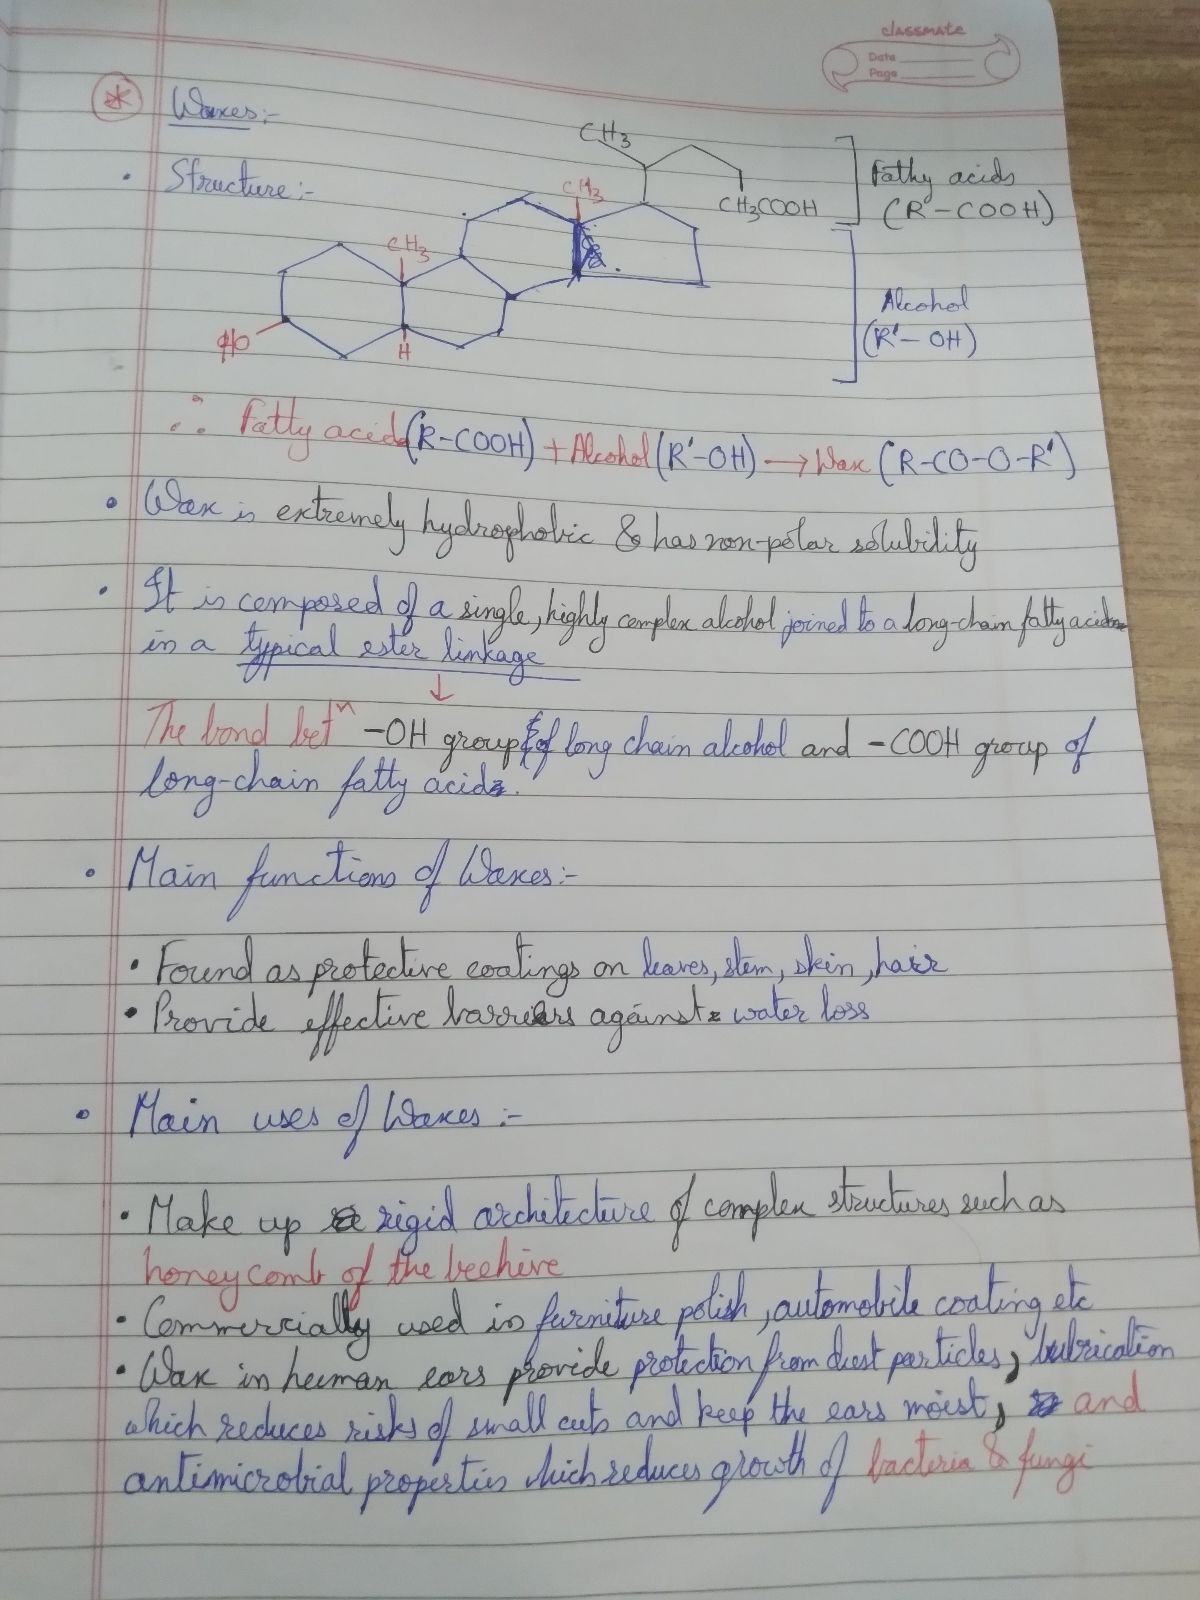 classmate
Date
Page
Waxes:-
• Structure:-
CH3
CH3
CH3COOH
Fathy acids
(R-COOH)
CH3
HO
H
Alcohol
(R'-OH)
∴ Fatty acids (R-COOH) + Alcohol (R'-OH) → Wax (R-CO-O-R')
• Wax is extremely hydrophobic & has non-polar solubility
• It is composed of a single, highly complex alcohol joined to a long-chain fatty acid
in a typical ester linkage
↓
The bond betn -OH group of long chain alcohol and -COOH group of
long-chain fatty acid.
• Main functions of Waxes:-
• Found as protective coatings on leaves, stem, skin, hair
• Provide effective barriers against water loss
• Main uses of Waxes:-
• Make up rigid architecture of complex structures such as
honeycomb of the beehive
• Commercially used in furniture polish, automobile coating etc
• Wax in human ears provide protection from dust particles, lubrication
which reduces risks of small cuts and keep the ears moist, and
antimicrobial properties which reduces growth of bacteria & fungi